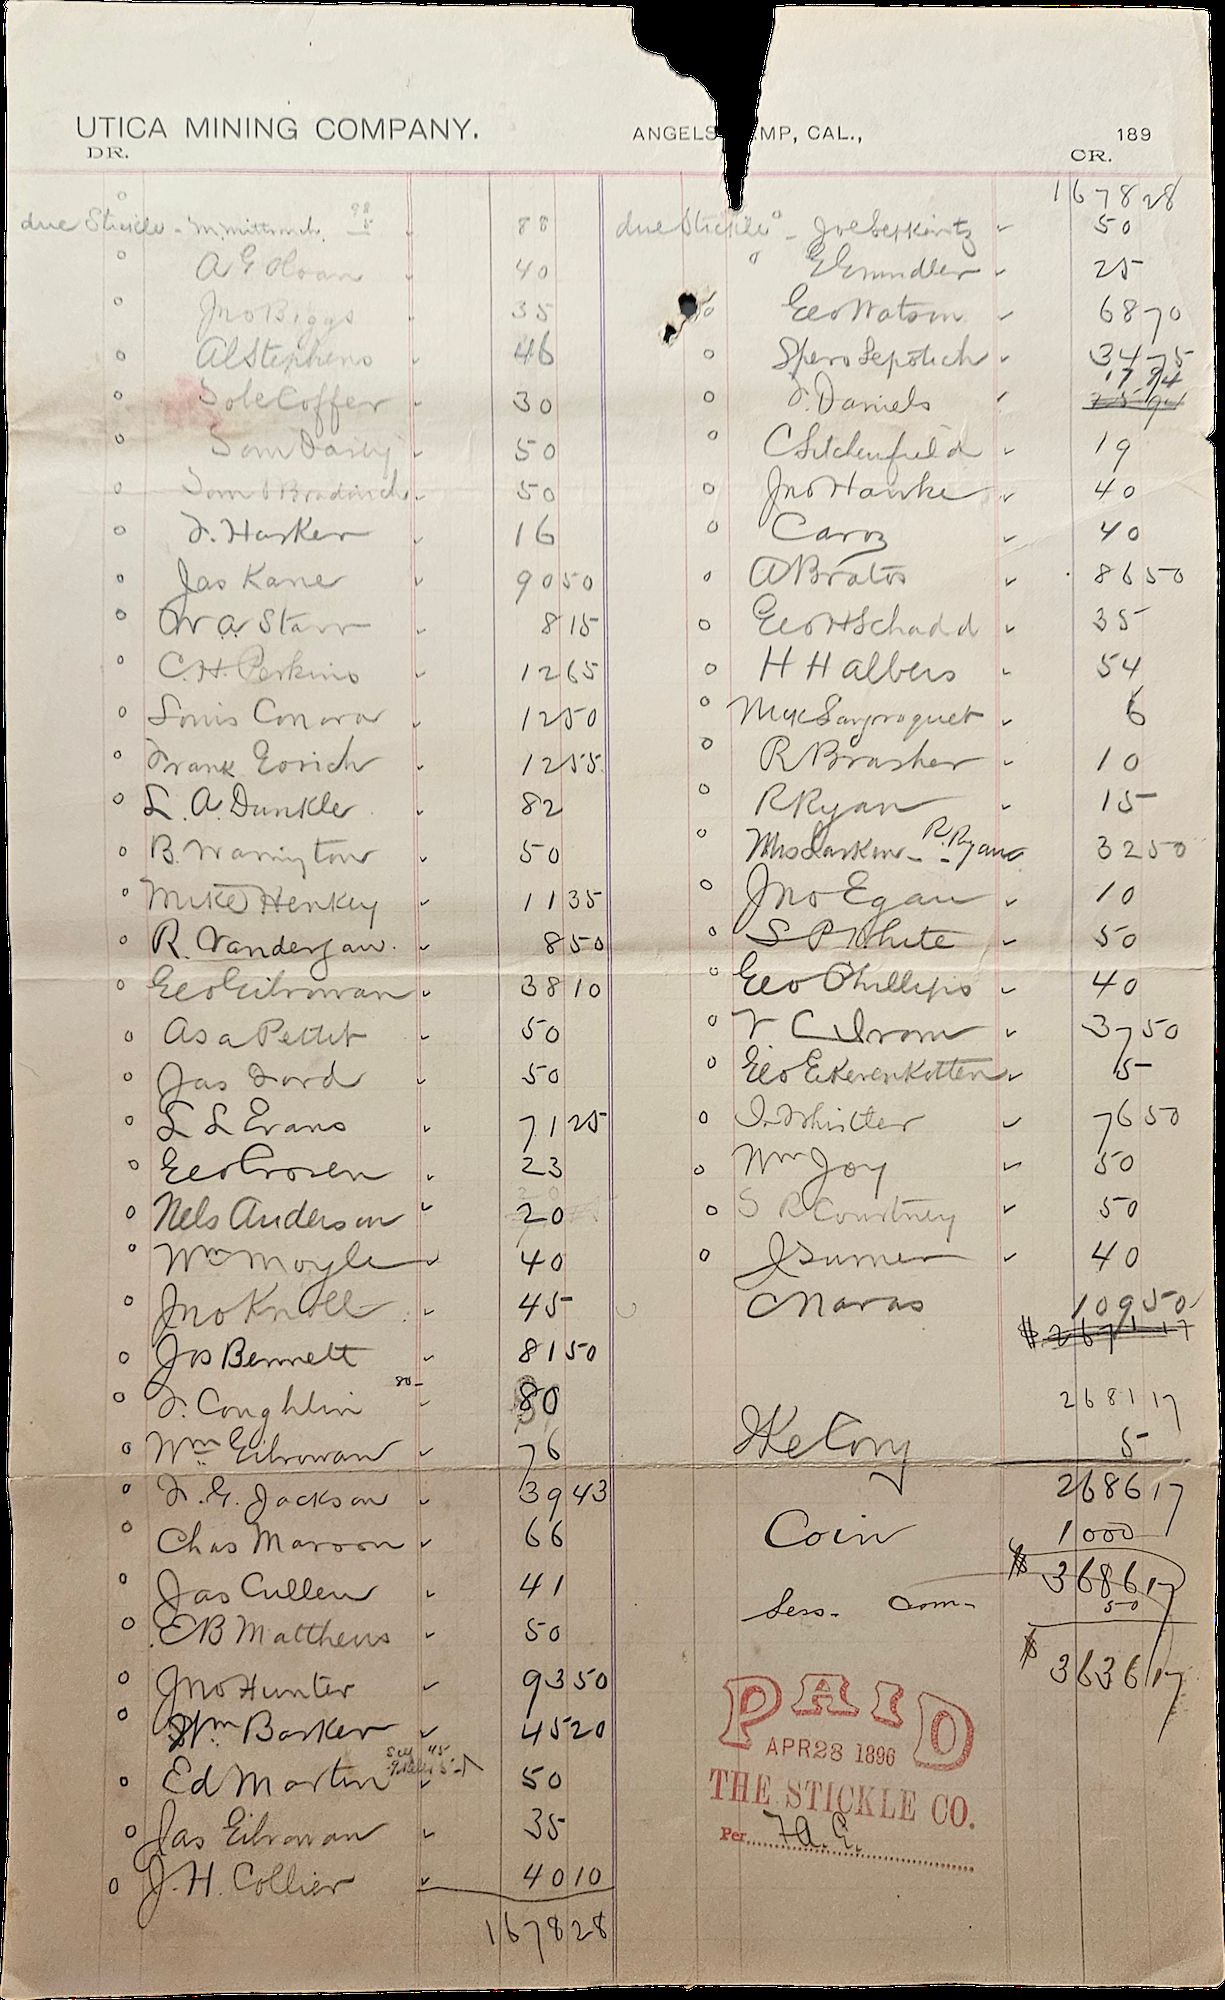 UTICA MINING COMPANY.
ANGELS MP, CAL., 189
DR.
CR.
due Stickle - M. 88
A G Sloan 40
Jno Biggs 35
Al Stephens 46
Coffer 30
50
Tom 50
F. Harker 16
Jas Kane 90 50
W. A. Starr 8 15
C. H. Perkins 12 65
Louis Conora 12 50
Frank Eorich 12 55
L. A. Dunkle 82
B. Warrington 50
Mike Henkey 11 35
R. Vanderjaw. 8 50
Geo Gilrowan 38 10
Asa Pettet 50
Jas Ford 50
L L Evans 71 25
Geo 23
Nels Anderson 20
Wm Moyle 40
Jno Knoll 45
Jos Bennett 81 50
80-
F. Coughlin 80
Wm Gilrowan 76
F. G. Jackson 39 43
Chas Maroon 66
Jas Cullen 41
E B Matthews 50
Jno Hunter 93 50
Wm. Barker 45 20
Ed Martin 50
Jas Gilrowan 35
J. H. Collier 40 10
1678 28
1678 28
due Stickle - Joe 50
25
Geo Watson 68 70
Spero Sepotich 34 75
F. Daniels 17 94
C Litchenfield 19
Jno Hawke 40
40
A Bratos 86 50
Geo H Schadd 35
H H Albers 54
6
R Brasher 10
R Ryan 15
Mrs Larkin - R. Ryan 32 50
Jno Egan 10
S P White 50
Geo Phillips 40
37 50
Geo Ekerenkotten 5
Whistler 76 50
Wm Joy 50
S R Courtney 50
J Turner 40
C Naras 109 50
$ 2671 17
2681 17
5
2686 17
Coin 1000
$ 3686 17
Less. Com- 50
$ 3636 17
PAID
APR 28 1896
THE STICKLE CO.
Per F. A. C.